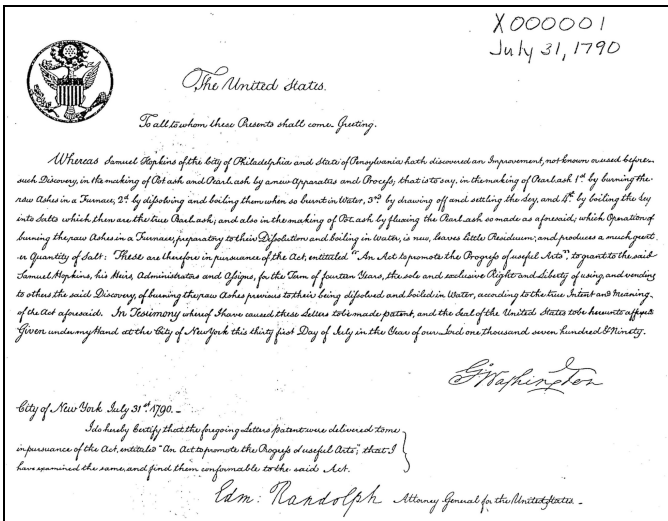 X000001
July 31, 1790
The United States.
To all to whom these Presents shall come. Greeting.
Whereas Samuel Hopkins of the City of Philadelphia and State of Pensylvania hath discovered an Improvement, not known or used before
such Discovery, in the making of Pot ash and Pearl ash by a new Apparatus and Process; that is to say, in the making of Pearl ash 1st. by burning the
raw Ashes in a Furnace, 2d. by dissolving and boiling them when so burnt in Water, 3rd. by drawing off and settling the Ley, and 4th. by boiling the Ley
into Salts which then are the true Pearl ash; and also in the making of Pot ash by fluxing the Pearl ash so made as aforesaid; which Operation of
burning the raw Ashes in a Furnace, preparatory to their Dissolution and boiling in Water, is new, leaves little Residuum; and produces a much great-
er Quantity of Salt: These are therefore in pursuance of the Act, entituled "An Act to promote the Progress of useful Arts", to grant to the said
Samuel Hopkins, his Heirs, Administrators and Assigns, for the Term of fourteen Years, the sole and exclusive Right and Liberty of using, and vending
to others the said Discovery, of burning the raw Ashes previous to their being dissolved and boiled in Water, according to the true Intent and meaning
of the Act aforesaid. In Testimony whereof I have caused these Letters to be made patent, and the Seal of the United States to be hereunto affixed
Given under my Hand at the City of New York this thirty first Day of July in the Year of our Lord one thousand seven hundred & Ninety.
G. Washington
City of New York July 31st. 1790. –
I do hereby Certify that the foregoing Letters patent were delivered to me
in pursuance of the Act, entituled "An Act to promote the Progress of useful Arts"; that I
have examined the same, and find them conformable to the said Act.
Edm: Randolph Attorney General for the United States –